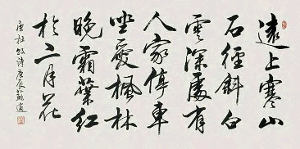 遠上寒山
石徑斜白
雲深處有
人家停車
坐愛楓林
晚霜葉紅
於二月花
唐杜牧詩庚辰